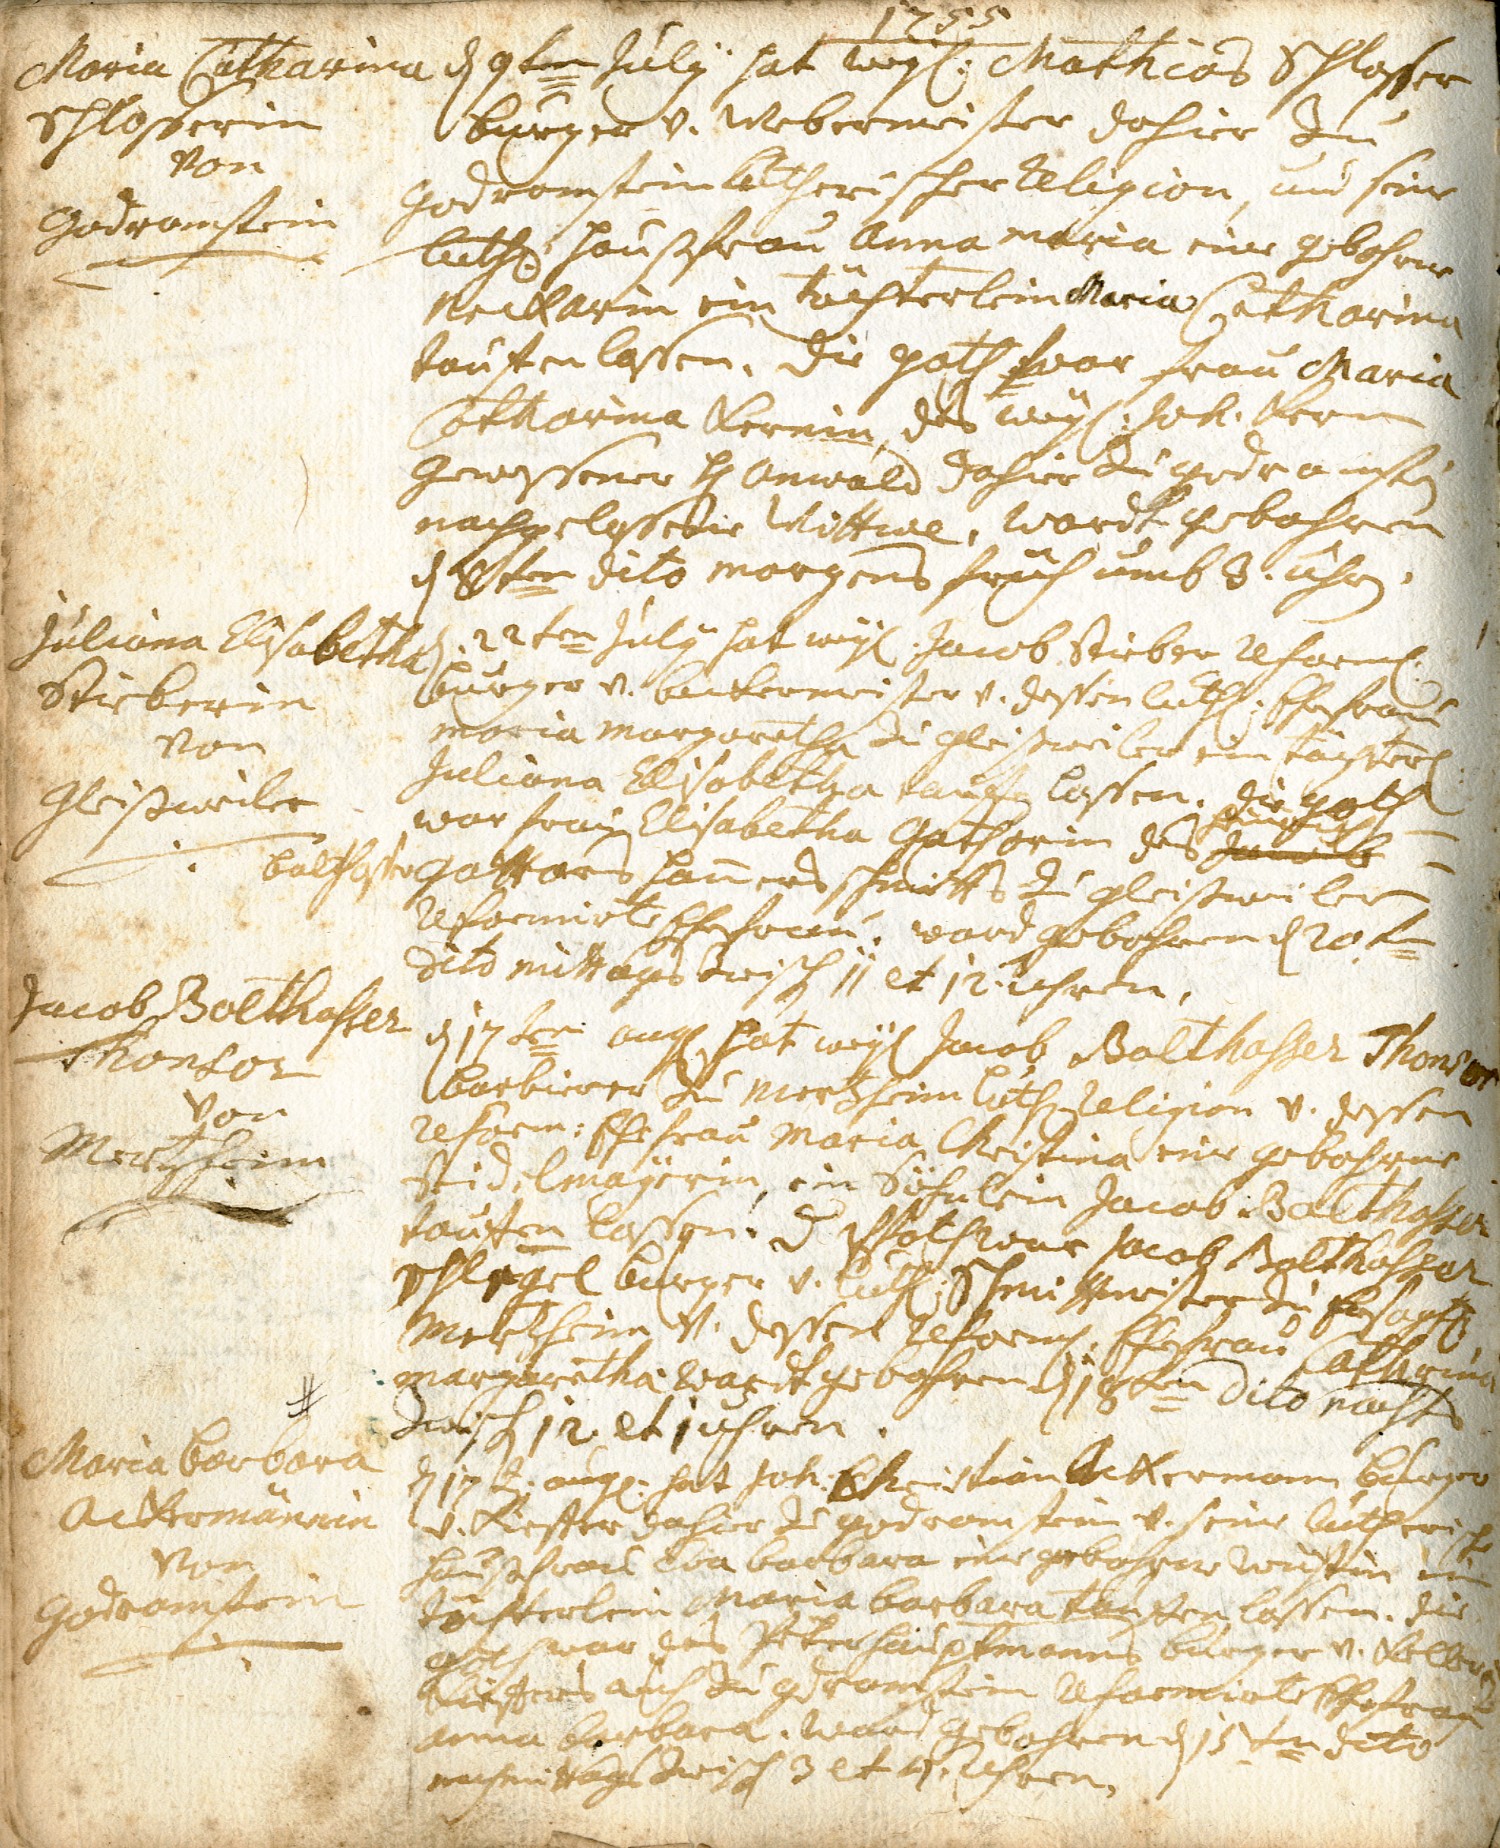 1755
Maria Catharina
Schlosserin
von
Godramstein
d 9ten July hat weyl. Mathias Schlosser
burger v. Webermeister dahier zu
Godramstein Lutherischer Religion, und seine
luth. Haußfrau Anna Maria eine gebohrne
Neckarin ein töchterlein Maria Catharina
tauffen lassen. die goth war frau Maria
Catharina Kernin, des weyl. Joh. Kern
gewessener H Anwald dahier zu godramst
nachgelassene Wittwe. wardt gebohren
d 8ten dito morgens früh umb 3. uhr.
Juliana Elisabetha
Stieberin
von
Gleisweiler
d. 22ten July hat weyl. Jacob Stieber Reform.
burger v. beckermeister v. dessen luth. Ehefrau
maria margaretha zu gleisweiler ein töchterl.
Juliana Elisabetha tauff lassen. die goth
war frau Elisabetha Gathorin des
balthasser gatthors schmitts zu gleisweiler
Reformirte Ehefrau. ward gebohren d 20t
dito mittags zwisch 11 et 12. uhren.
Jacob Balthasser
Thonsor
von
Mertzheim
d 17ten aug hat weyl Jacob Balthasser Thonsor
barbierer zu Mertzheim luth. Religion v. dessen
Reform: Ehefrau Maria Christina eine gebohrne
Steidelmayerin, ein Söhnlein Jacob Balthasser
tauffen lassen. d Jacob Balthasser
Schlegel burger v. luth. Schmittmeister zu besagt
Mertzheim v. dessen Reform. Ehefrau Catharina
margaretha. wardt gebohren d 16ten dito nachts
zwisch 12 et 1 uhren.
#
Maria barbara
Ackermännin
von
godramstein
d 17t. aug. hat Joh. Christian Ackermann burger
v. Kieffer dahier zu godramstein v. seine lutherisch
haußfrau Eva barbara eine gebohrne Wüstin ein
töchterlein Maria barbara tauffen lassen. die
goth war des Peter hauptmanns burger v.
Kieffers auch zu godramstein Reformirte Ehefrau
anna barbara. ward gebohren d 15ten dito
nachmittags zwisch 3 et 4. Uhren.